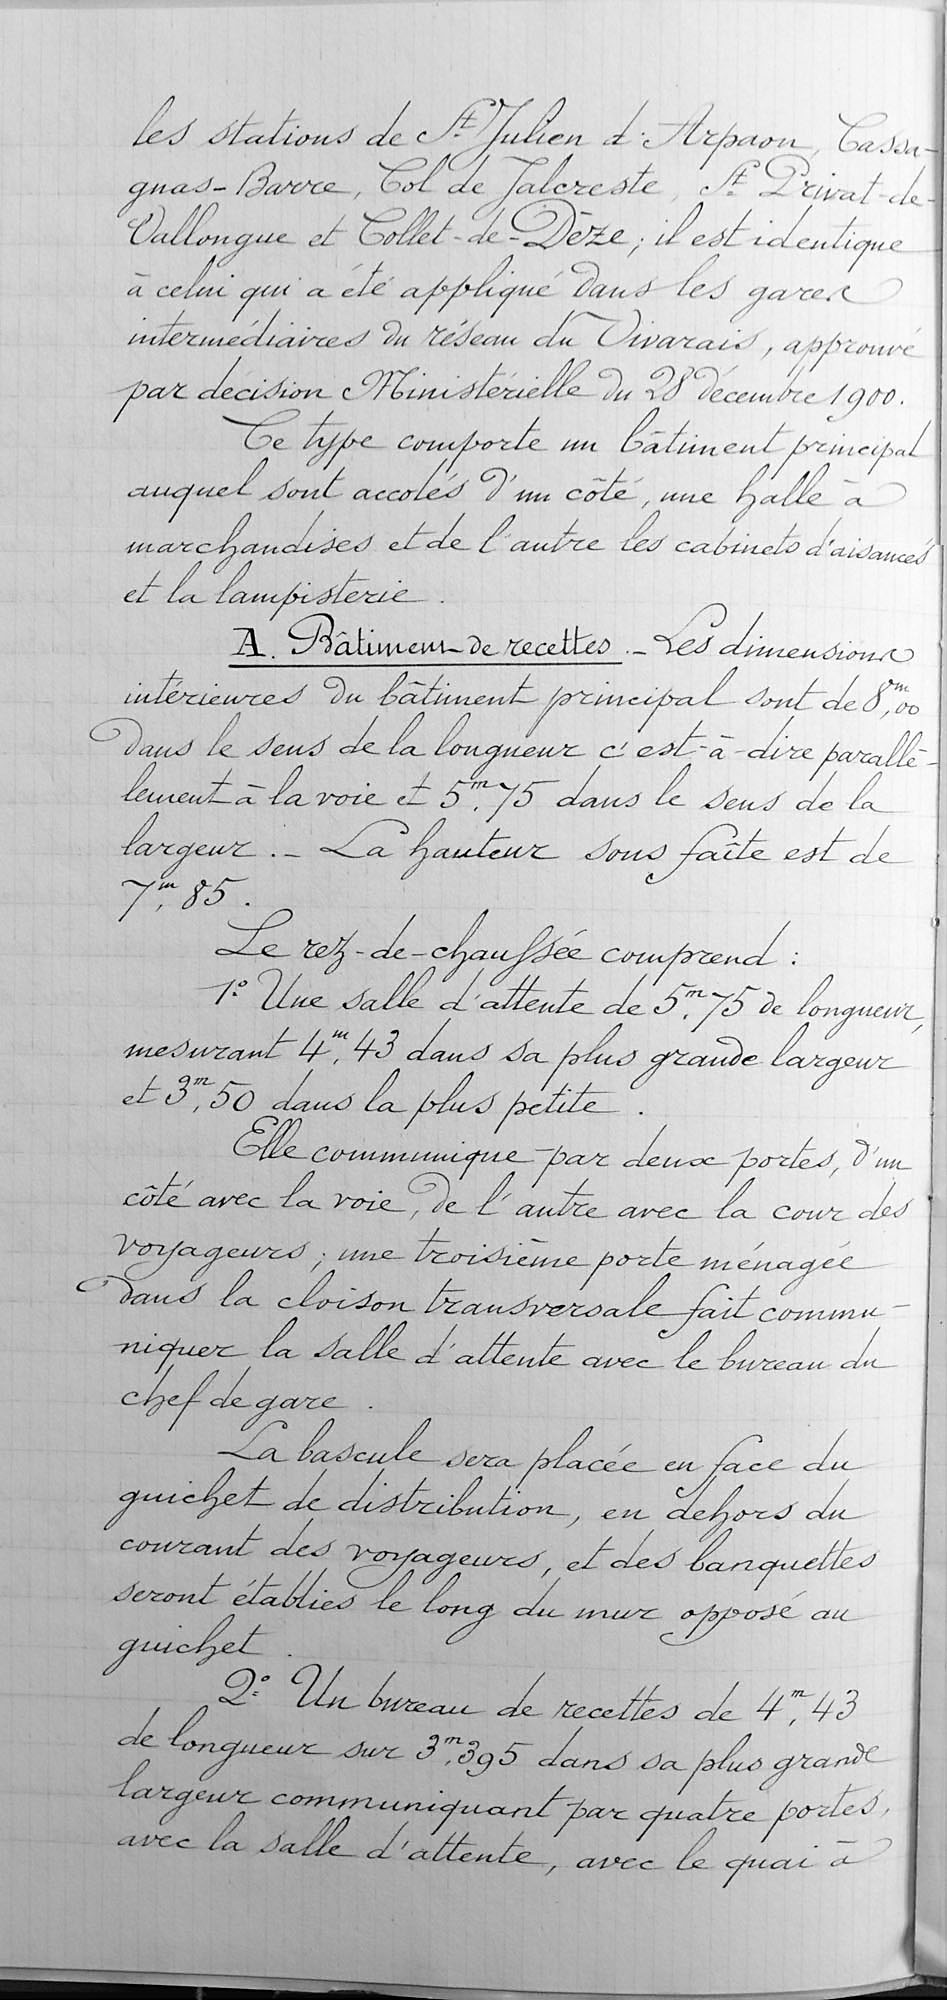 les stations de St Julien d'Arpaon, Cassa-
gnas-Barre, Col de Jalcreste, St Privat-de-
Vallongue et Collet-de-Dèze; il est identique
à celui qui a été appliqué dans les gares
intermédiaires du réseau du Vivarais, approuvé
par décision Ministérielle du 28 décembre 1900.
Ce type comporte un bâtiment principal
auquel sont accolés d'un côté, une halle à
marchandises et de l'autre les cabinets d'aisances
et la lampisterie.
A. Bâtiment de recettes. - Les dimensions
intérieures du bâtiment principal sont de 8m,00
dans le sens de la longueur c'est-à-dire parallè-
lement à la voie et 5m,75 dans le sens de la
largeur. - La hauteur sous faîte est de
7m,85.
Le rez-de-chaussée comprend :
1° Une salle d'attente de 5m,75 de longueur,
mesurant 4m,43 dans sa plus grande largeur
et 3m,50 dans la plus petite.
Elle communique par deux portes, d'un
côté avec la voie, de l'autre avec la cour des
voyageurs; une troisième porte ménagée
dans la cloison transversale fait commu-
niquer la salle d'attente avec le bureau du
chef de gare.
La bascule sera placée en face du
guichet de distribution, en dehors du
courant des voyageurs, et des banquettes
seront établies le long du mur opposé au
guichet.
2° Un bureau de recettes de 4m,43
de longueur sur 3m,395 dans sa plus grande
largeur communiquant par quatre portes,
avec la salle d'attente, avec le quai à